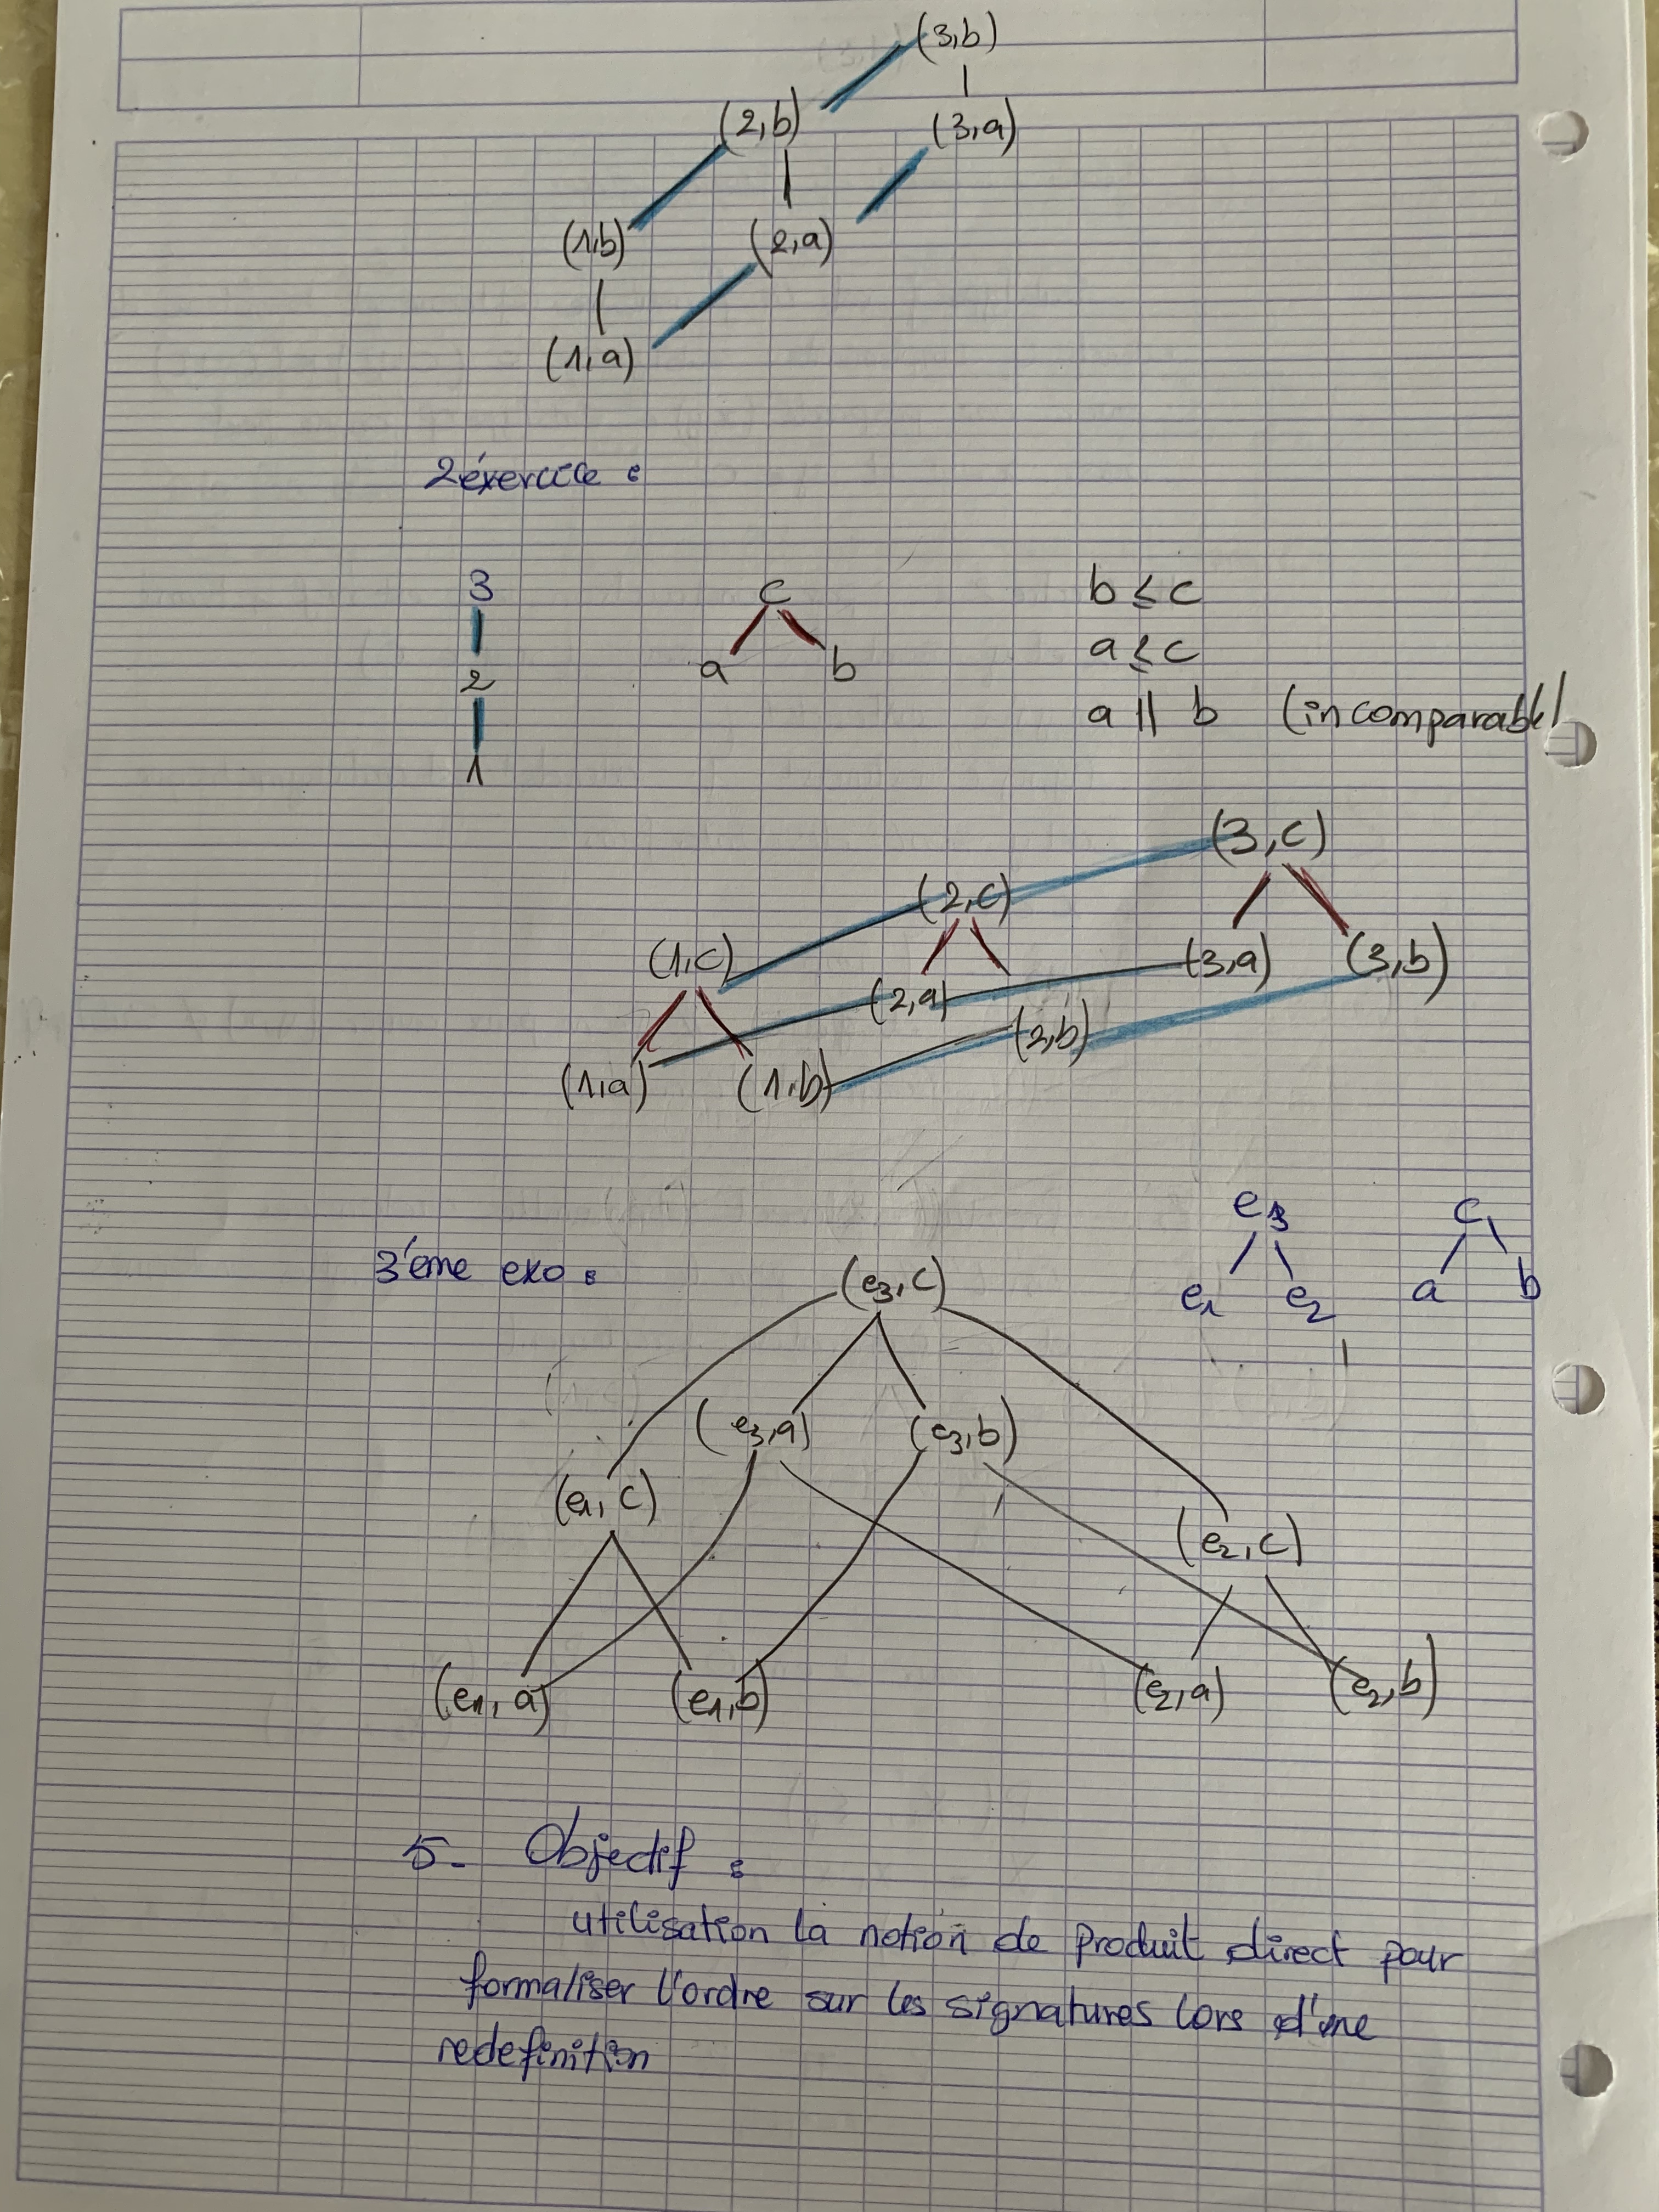 (3,b)
(2,b) (3,a)
(1,b) (2,a)
(1,a)
2éxercice :
3 c b ≤ c
a b a ≤ c
2
a || b (incomparable)
1
(3,c)
(2,c)
(1,c) (3,a) (3,b)
(2,a)
(2,b)
(1,a) (1,b)
e3 c
3éme exo : (e3,c)
e1 e2 a b
(e3,a) (e3,b)
(e1,c)
(e2,c)
(e1,a) (e1,b) (e2,a) (e2,b)
5- Objectif :
utilisation la notion de produit direct pour
formaliser l'ordre sur les signatures lors d'une
redefinition